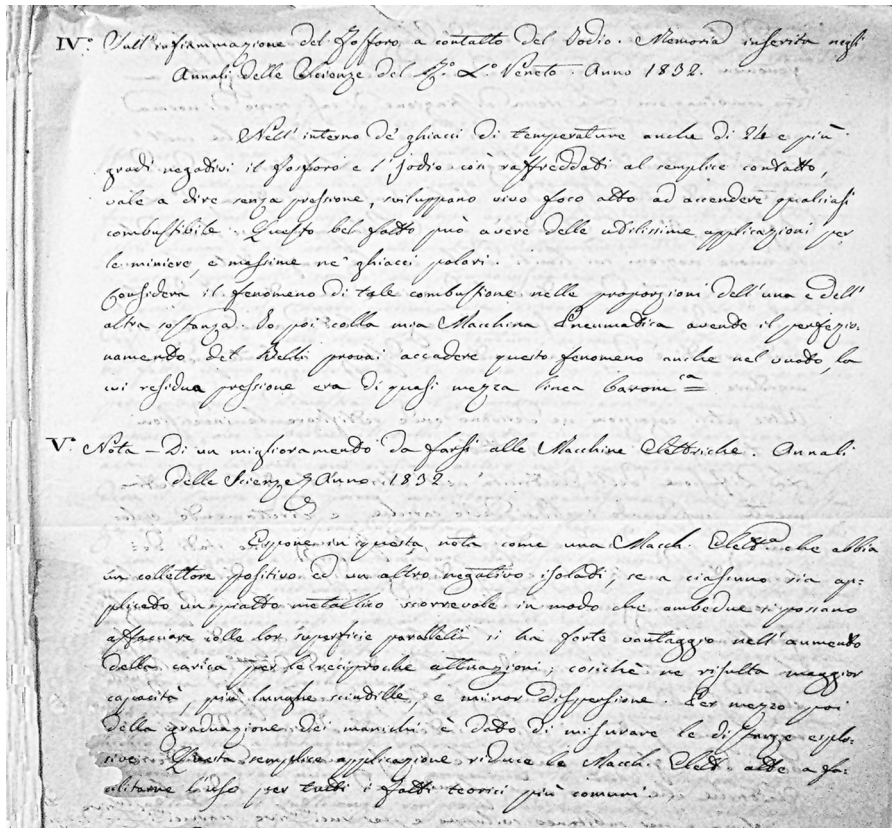 IV.º Sull'infiammazione del Fosforo a contatto del Iodio. Memoria inserita negli
Annali delle Scienze del R.º L.º Veneto. Anno 1832.
Nell'interno de' ghiacci di temperature anche di 24 e più
gradi negativi il fosforo e l'Iodio così raffreddati al semplice contatto,
vale a dire senza pressione, sviluppano vivo foco atto ad accendere qualsiasi
combustibile. Questo bel fatto può avere delle utilissime applicazioni per
le miniere, e massime ne' ghiacci polari.
Considera il fenomeno di tale combustione nelle proporzioni dell'una e dell'
altra sostanza. Io poi colla mia Macchina Pneumatica avente il perfezio-
namento del Belli provai accadere questo fenomeno anche nel vuoto, la
cui residua pressione era di quasi mezza linea barom.ca
V. Nota – Di un miglioramento da farsi alle Macchine Elettriche. Annali
delle Scienze Anno 1832
Espone in questa nota come una Macch. Elett.a che abbia
un collettore positivo ed un altro negativo isolati, se a ciascuno sia ap-
plicato un piatto metallico scorrevole in modo che ambedue si possano
affacciare colle lor superficie parallelle si ha forte vantaggio nell'aumento
della carica per le reciproche attuazioni; cosichè ne risulta maggior
capacità, più lunghe scintille, e minor dispersione. Per mezzo poi
della graduazione dei manichi è dato di misurare le distanze esplo-
sive. Questa semplice applicazione riduce le Macch. Elett. atte a fa-
cilitarne l'uso per tutti i fatti teorici più comuni.